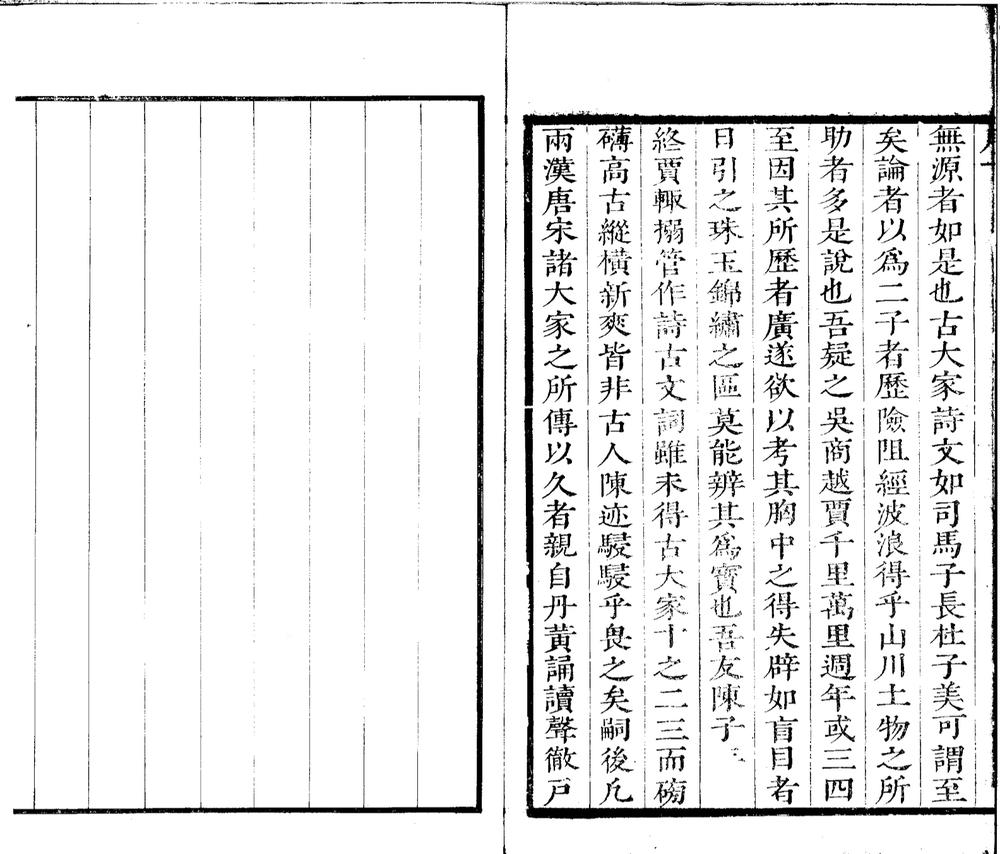 無源者如是也古大家詩文如司馬子長杜子美可謂至
矣論者以爲二子者歷險阻經波浪得乎山川土物之所
助者多是說也吾疑之吳商越賈千里萬里週年或三四
至因其所歷者廣遂欲以考其胸中之得失辟如盲目者
日引之珠玉錦繡之區莫能辨其爲寶也吾友陳子
終賈輙搦管作詩古文詞雖未得古大家十之二三而磅
礴高古縱橫新爽皆非古人陳迹駸駸乎畏之矣嗣後凡
兩漢唐宋諸大家之所傳以久者親自丹黃誦讀聲徹戸